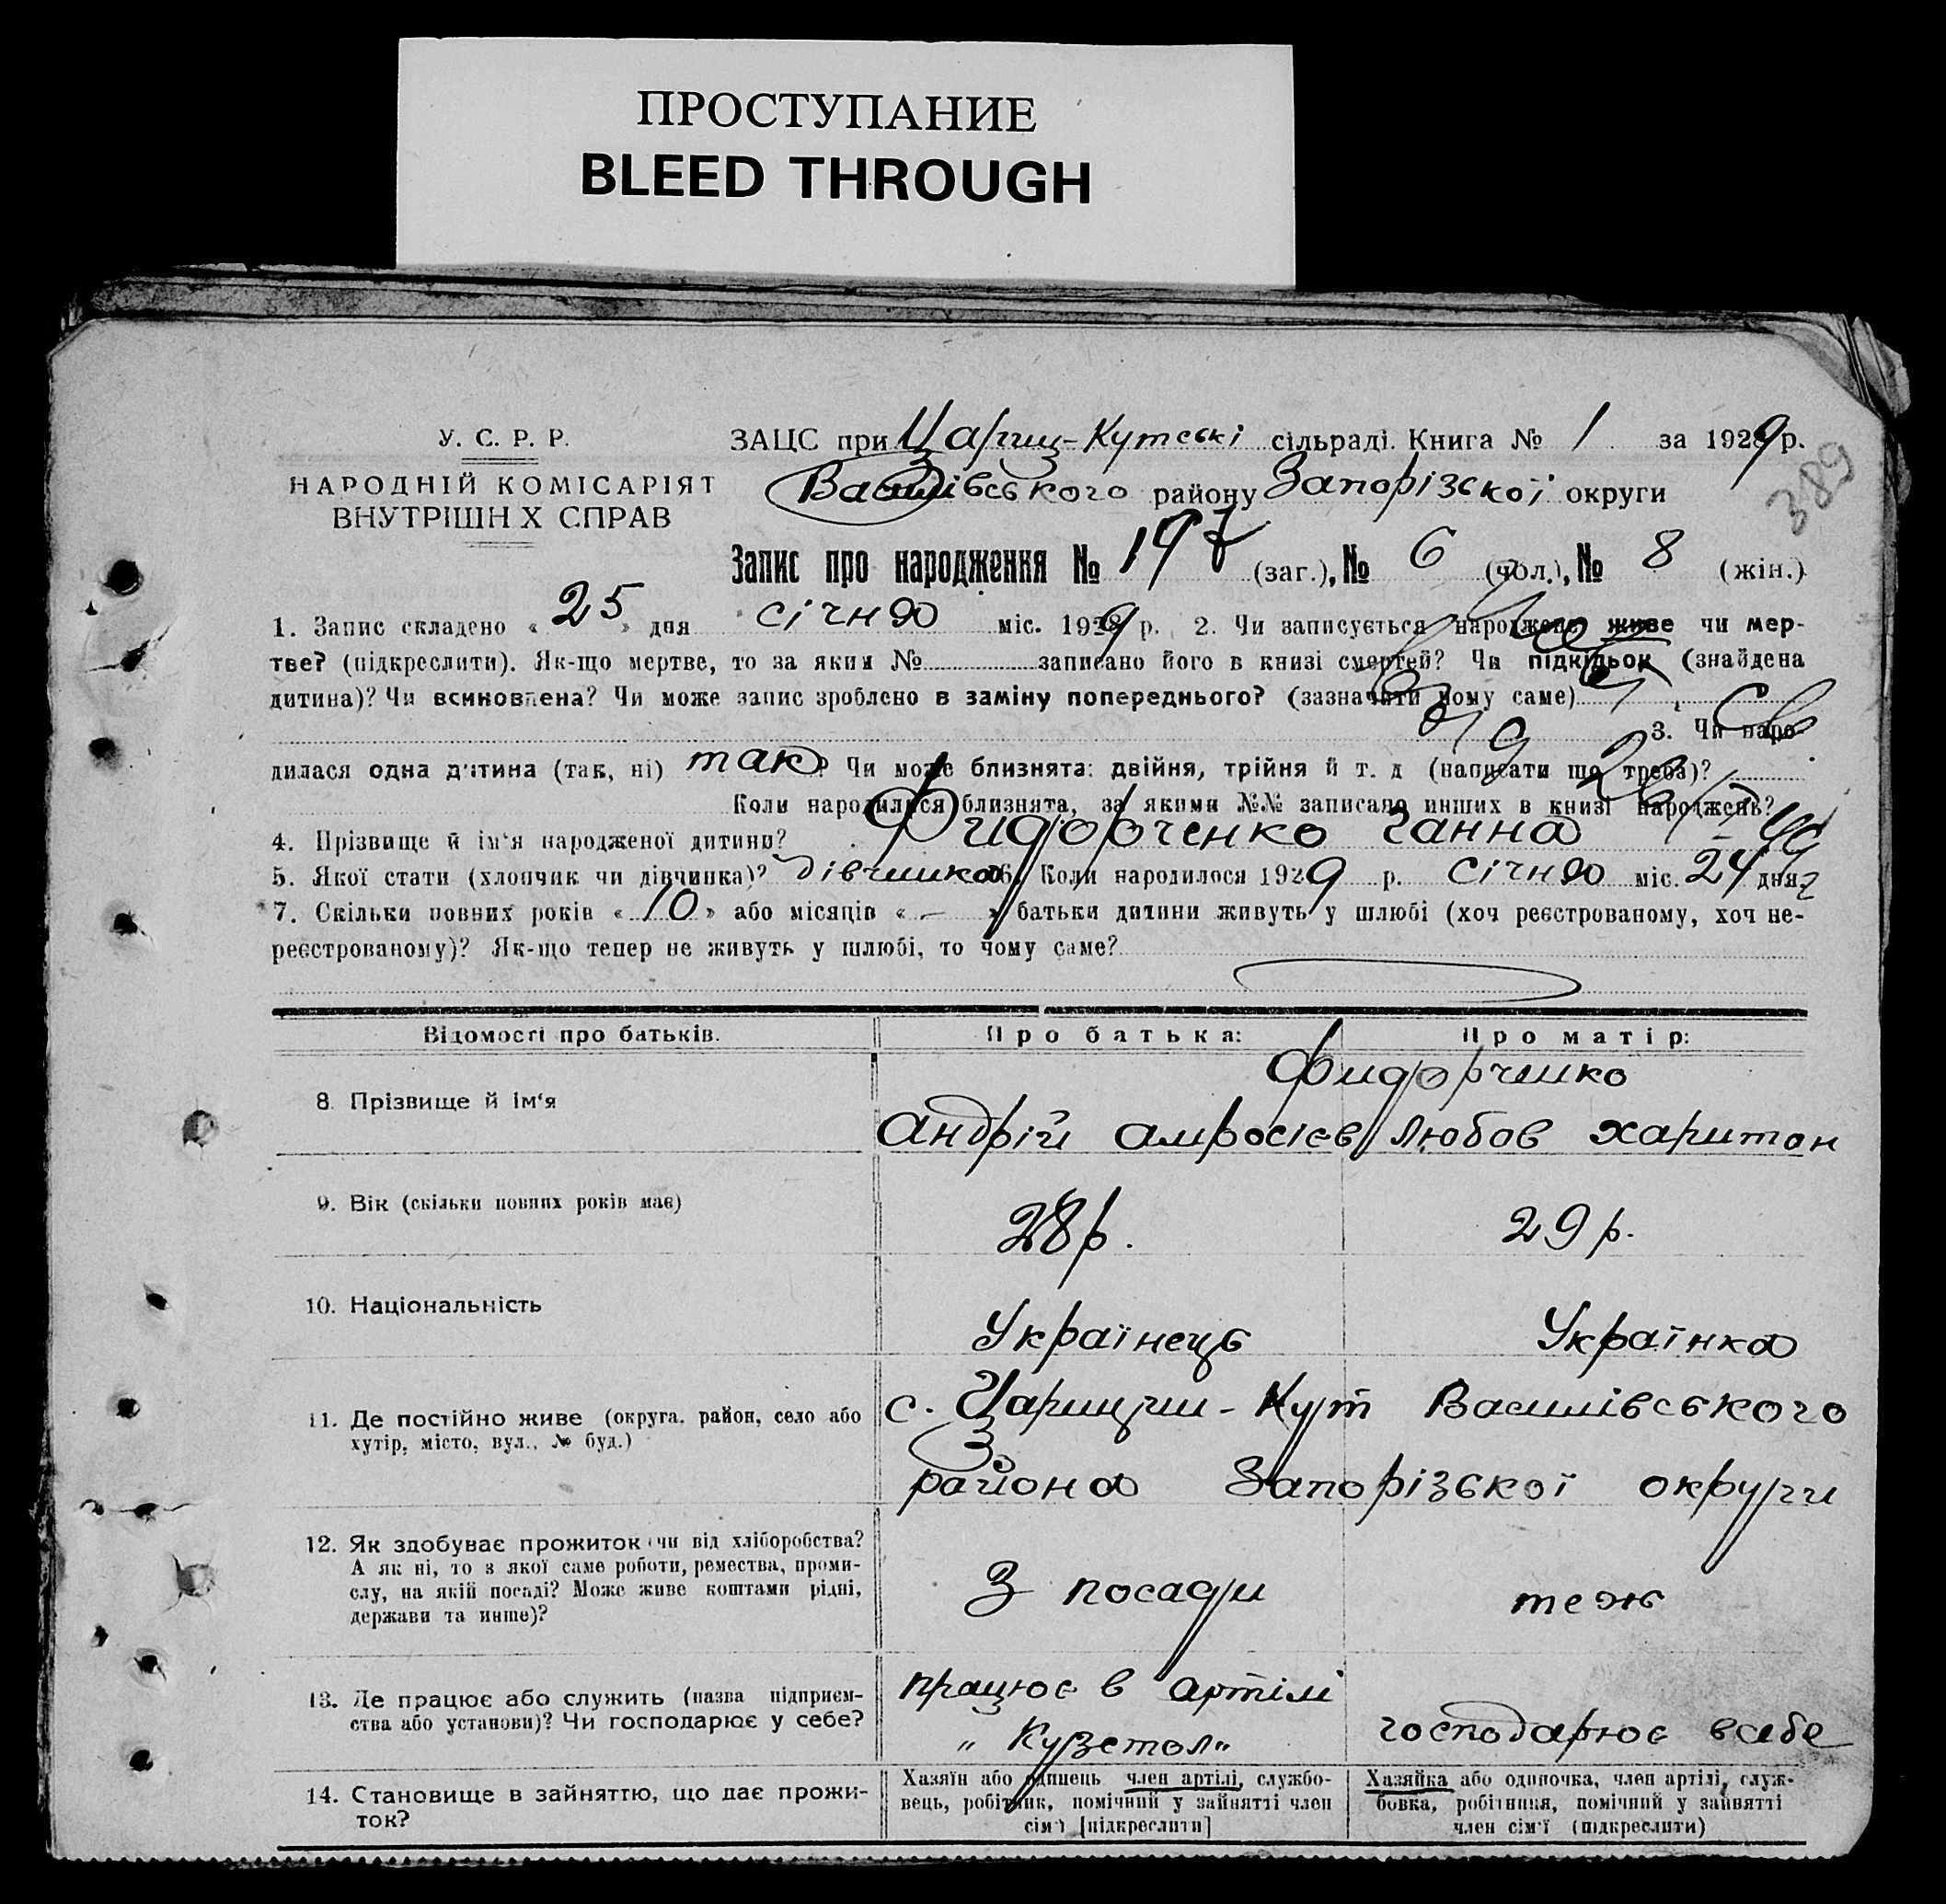 ПРОСТУПАНИЕ
BLEED THROUGH
У. С. Р. Р.
НАРОДНІЙ КОМІСАРІЯТ
ВНУТРІШН Х СПРАВ
ЗАЦС при Царици-Кутські сільраді. Книга № 1 за 1929 р.
Василівського району Запорізької округи
389
Запис про народження № 147 (заг.), № 6 (чол.), № 8 (жін.)
1. Запис складено « 25 » дня січня міс. 1929 р. 2. Чи записується народжене живе чи мер-
тве? (підкреслити). Як-що мертве, то за яким № записано його в книзі смертей? Чи підкідьок (знайдена
дитина)? Чи всиновлена? Чи може запис зроблено в заміну попереднього? (зазначити чому саме)
3. Чи наро-
дилася одна дитина (так, ні) так? Чи може близнята: двійня, трійня й т. д (написати що треба)?
Коли народилися близнята, за якими №№ записано инших в книзі народжень?
4. Прізвище й ім'я народженої дитини? Фидорченко Ганна
5. Якої стати (хлопчик чи дівчинка)? дівчинка 6. Коли народилося 1929 р. січня міс. 24 дня
7. Скільки повних років « 10 » або місяців « – » батьки дитини живуть у шлюбі (хоч реєстрованому, хоч не-
реєстрованому)? Як-що тепер не живуть у шлюбі, то чому саме?
Відомості про батьків. Про батька: Про матір:
Фидорченко
8. Прізвище й ім'я Андрій Амросієв Любов Харитон
9. Вік (скільки повних років має) 28 р. 29 р.
10. Національність Українець Українка
11. Де постійно живе (округа. район, село або с. Царицин-Кут Василівського
хутір, місто, вул., № буд.) района Запорізської округи
12. Як здобуває прожиток чи від хліборобства?
А як ні, то з якої саме роботи, ремества, проми-
слу, на якій посаді? Може живе коштами рідні, З посади теж
держави та инше)?
13. Де працює або служить (назва підприєм- працює в артілі
ства або установи)? Чи господарює у себе? „Кузстол" господарює в себе
14. Становище в зайняттю, що дає прожи-
ток?
Хазяїн або одинець член артілі, службо-
вець, робітник, помічний у зайнятті член
сім'ї [підкреслити]
Хазяйка або одиночка, член артілі, служ-
бовка, робітниця, помічний у зайнятті
член сім'ї (підкреслити)